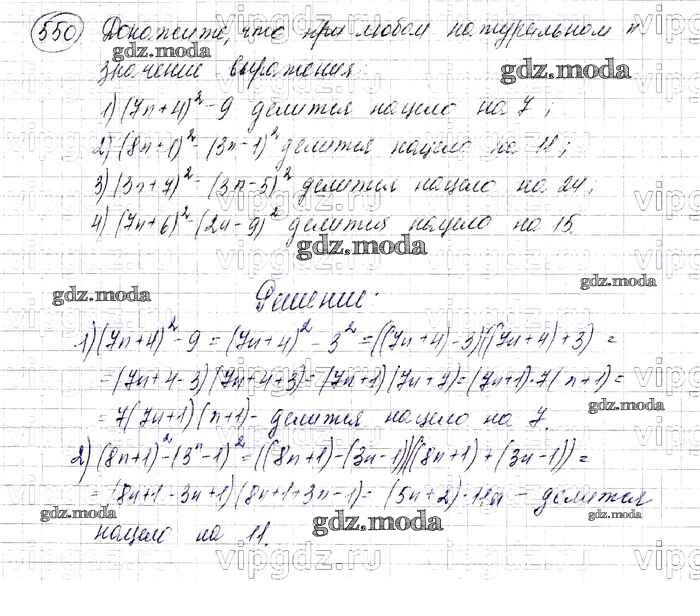 550 Докажите, что при любом натуральном n
значение выражения:
1) (7n+4)² - 9 делится нацело на 7;
2) (8n+1)² - (3n-1)² делится нацело на 11;
3) (3n+7)² - (3n-5)² делится нацело на 24;
4) (7n+6)² - (2n-9)² делится нацело на 15.
Решение:
1) (7n+4)² - 9 = (7n+4)² - 3² = ((7n+4)-3)((7n+4)+3) =
= (7n+4-3)(7n+4+3) = (7n+1)(7n+7) = (7n+1)·7(n+1) =
= 7(7n+1)(n+1) - делится нацело на 7.
2) (8n+1)² - (3n-1)² = ((8n+1)-(3n-1))((8n+1)+(3n-1)) =
= (8n+1-3n+1)(8n+1+3n-1) = (5n+2)·11n - делится
нацело на 11.
gdz.moda
gdz.moda
gdz.moda
gdz.moda
gdz.moda
gdz.moda
gdz.moda
gdz.moda
gdz.moda